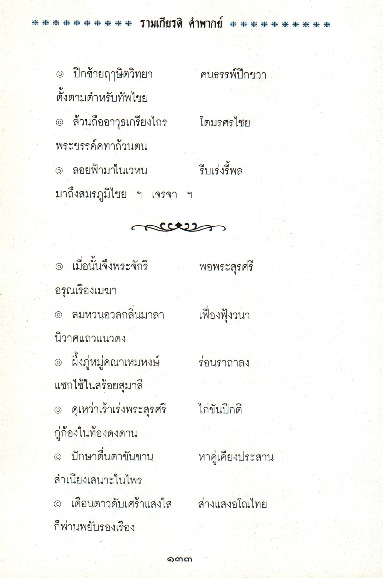 รามเกียรติ คำพากย์
๏ ปีกซ้ายฤๅษิตวิทยา คนธรรพ์ปีกขวา
ตั้งตามตำหรับทัพไชย
๏ ล้วนถืออาวุธเกรียงไกร โตมรศรไชย
พระขรรค์คทาถ้วนตน
๏ ลอยฟ้ามาในเวหน รีบเร่งรี้พล
มาถึงสมรภูมิไชย ฯ เจรจา ฯ
๏ เมื่อนั้นจึงพระจักรี พอพระสุรศรี
อรุณเรืองเมฆา
๏ ลมหวนอวลกลิ่นมาลา เฟื่องฟุ้งวนา
นิวาศแถวแนวดง
๏ ผึ้งภู่หมู่คณาเหมหงษ์ ร่อนราถาลง
แซกไซ้ในสร้อยสุมาลี
๏ ดุเหว่าเร้าเร่งพระสุรศรี ไก่ขันปีกตี
กู่ก้องในท้องดงดาน
๏ ปักษาตื่นตาขันขาน หาคู่เคียงประสาน
สำเนียงเสนาะในไพร
๏ เดือนดาวดับเศร้าแสงใส ส่างแสงอโณไทย
ก็ผ่านพยับรองเรือง
๑๓๓